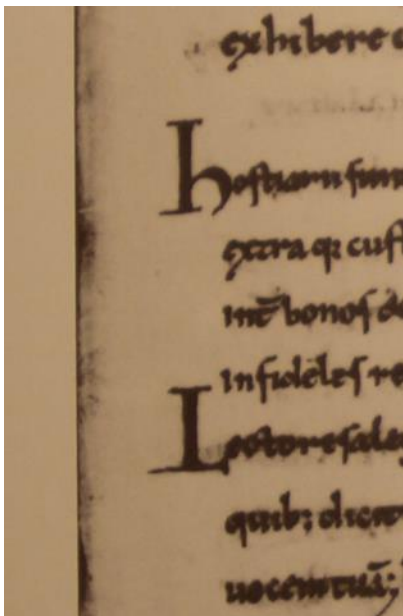 exhibere
hostiarii sunt
extra q; cust
int̄ bonos
infideles re
Lectores a leg
quib; dicit
uocem tuā;